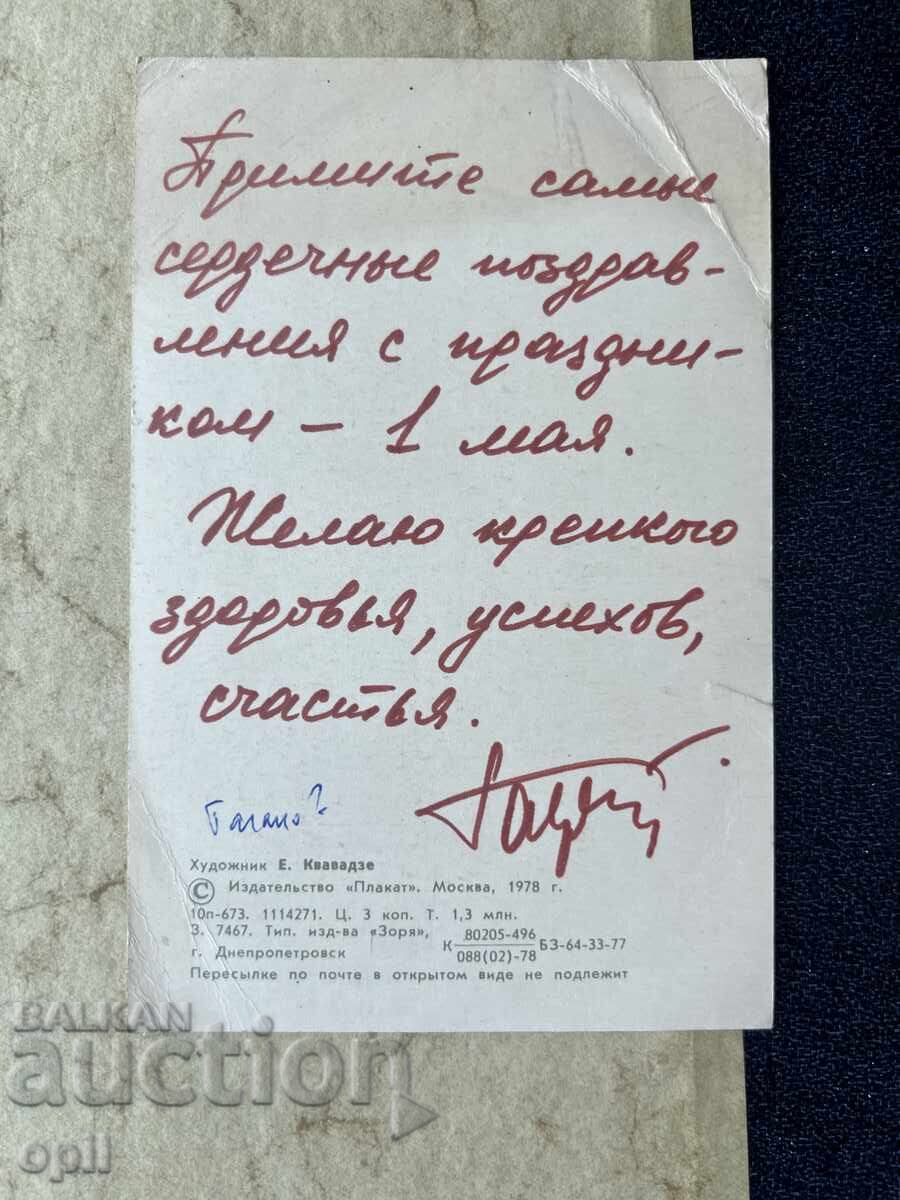 Примите самые
сердечные поздрав-
ления с праздни-
ком – 1 мая.
Желаю крепкого
здоровья, успехов,
счастья.
Художник Е. Квавадзе
© Издательство «Плакат». Москва, 1978 г.
10п-673. 1114271. Ц. 3 коп. Т. 1,3 млн.
З. 7467. Тип. изд-ва «Зоря»,
г. Днепропетровск
К 80205-496 / 088(02)-78 БЗ-64-33-77
Пересылке по почте в открытом виде не подлежит
BALKAN
auction
opll